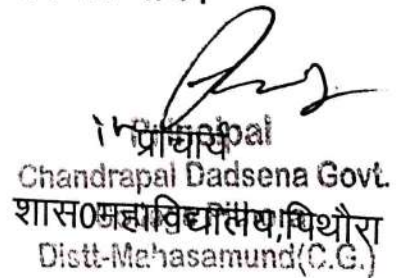 प्राचार्य
Principal
Chandrapal Dadsena Govt.
शास0महाविद्यालय,पिथौरा
Distt-Mahasamund(C.G.)